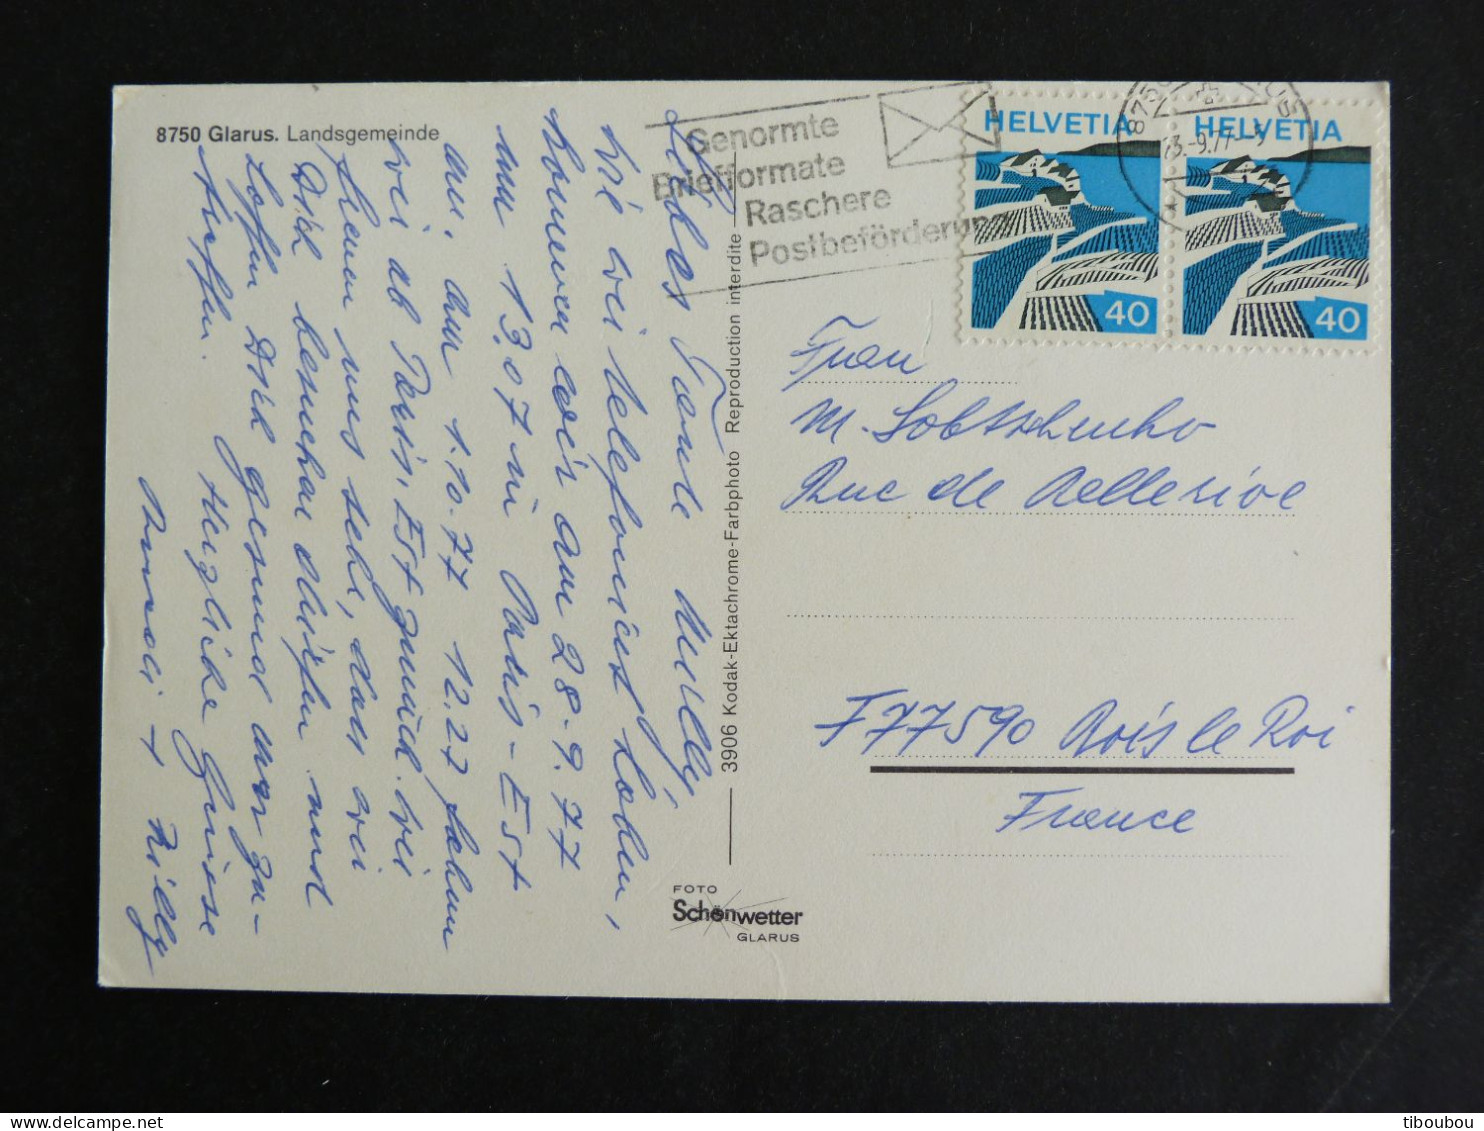 8750 Glarus. Landsgemeinde
Genormte
Briefformate
Raschere
Postbeförderung
HELVETIA
40
HELVETIA
40
8750 GLARUS
23.-9.77-5
Liebes Tante Milly
wie wir telefoniert haben,
kommen wir am 28.9.77
um 13.07 in Paris-Est
an. Am 1.10.77 12.27 fahren
wir ab Paris-Est zurück. Wir
freuen uns sehr, dass wir
Dich besuchen dürfen und
hoffen Dich gesund anzu-
treffen. Herzliche Grüsse
+ Willy
3906 Kodak-Ektachrome-Farbphoto Reproduction interdite
FOTO
Schönwetter
GLARUS
Frau
M. Sobtschenko
Rue de Bellerive
F 77590 Bois le Roi
France
tiboubou